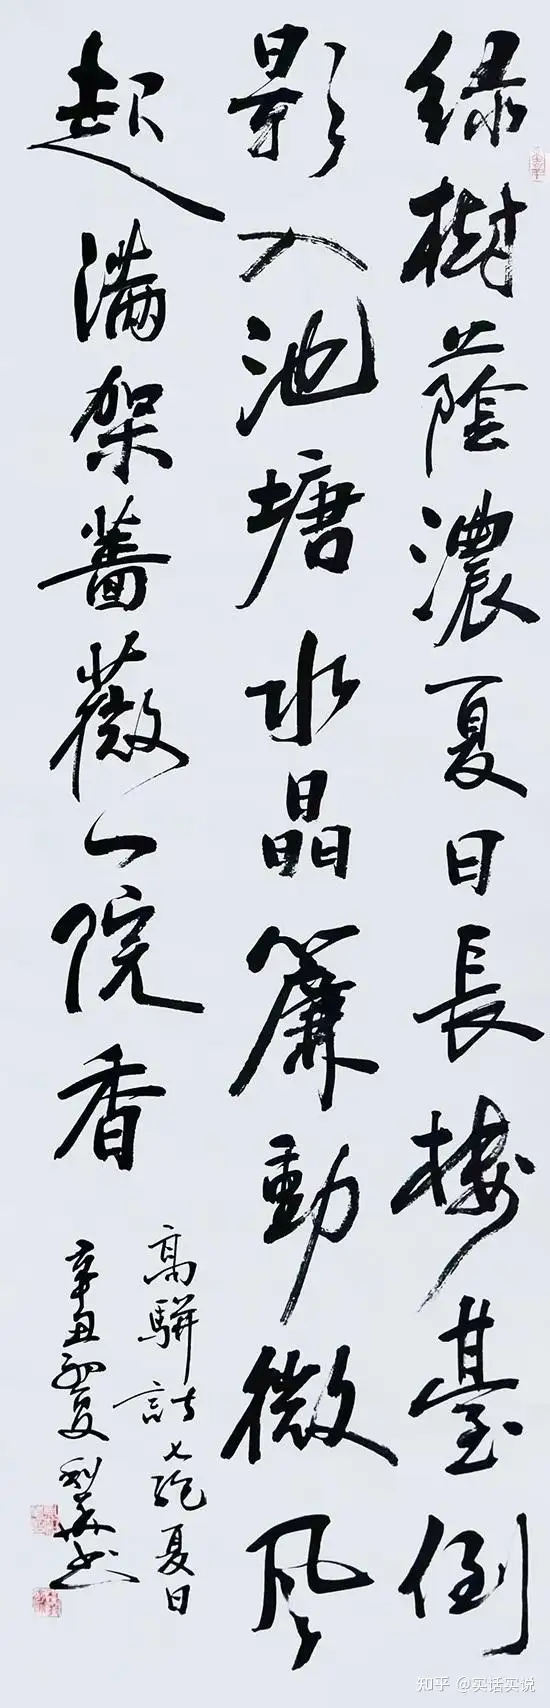 绿樹蔭濃夏日長樓臺倒
影入池塘水晶簾動微風
起滿架薔薇一院香
高駢詩七絕夏日
辛丑初夏
知乎 @实话实说